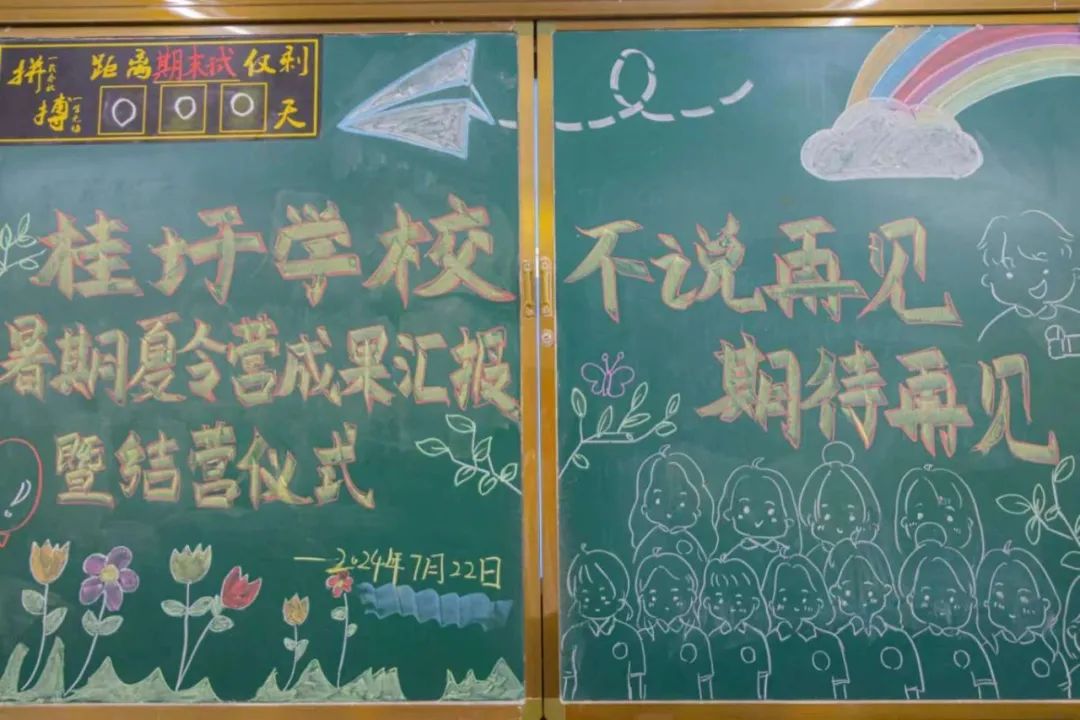 拼搏
距离期末试仅剩
000天
桂圩学校
暑期夏令营成果汇报
暨结营仪式
—2024年7月22日
不说再见
期待再见